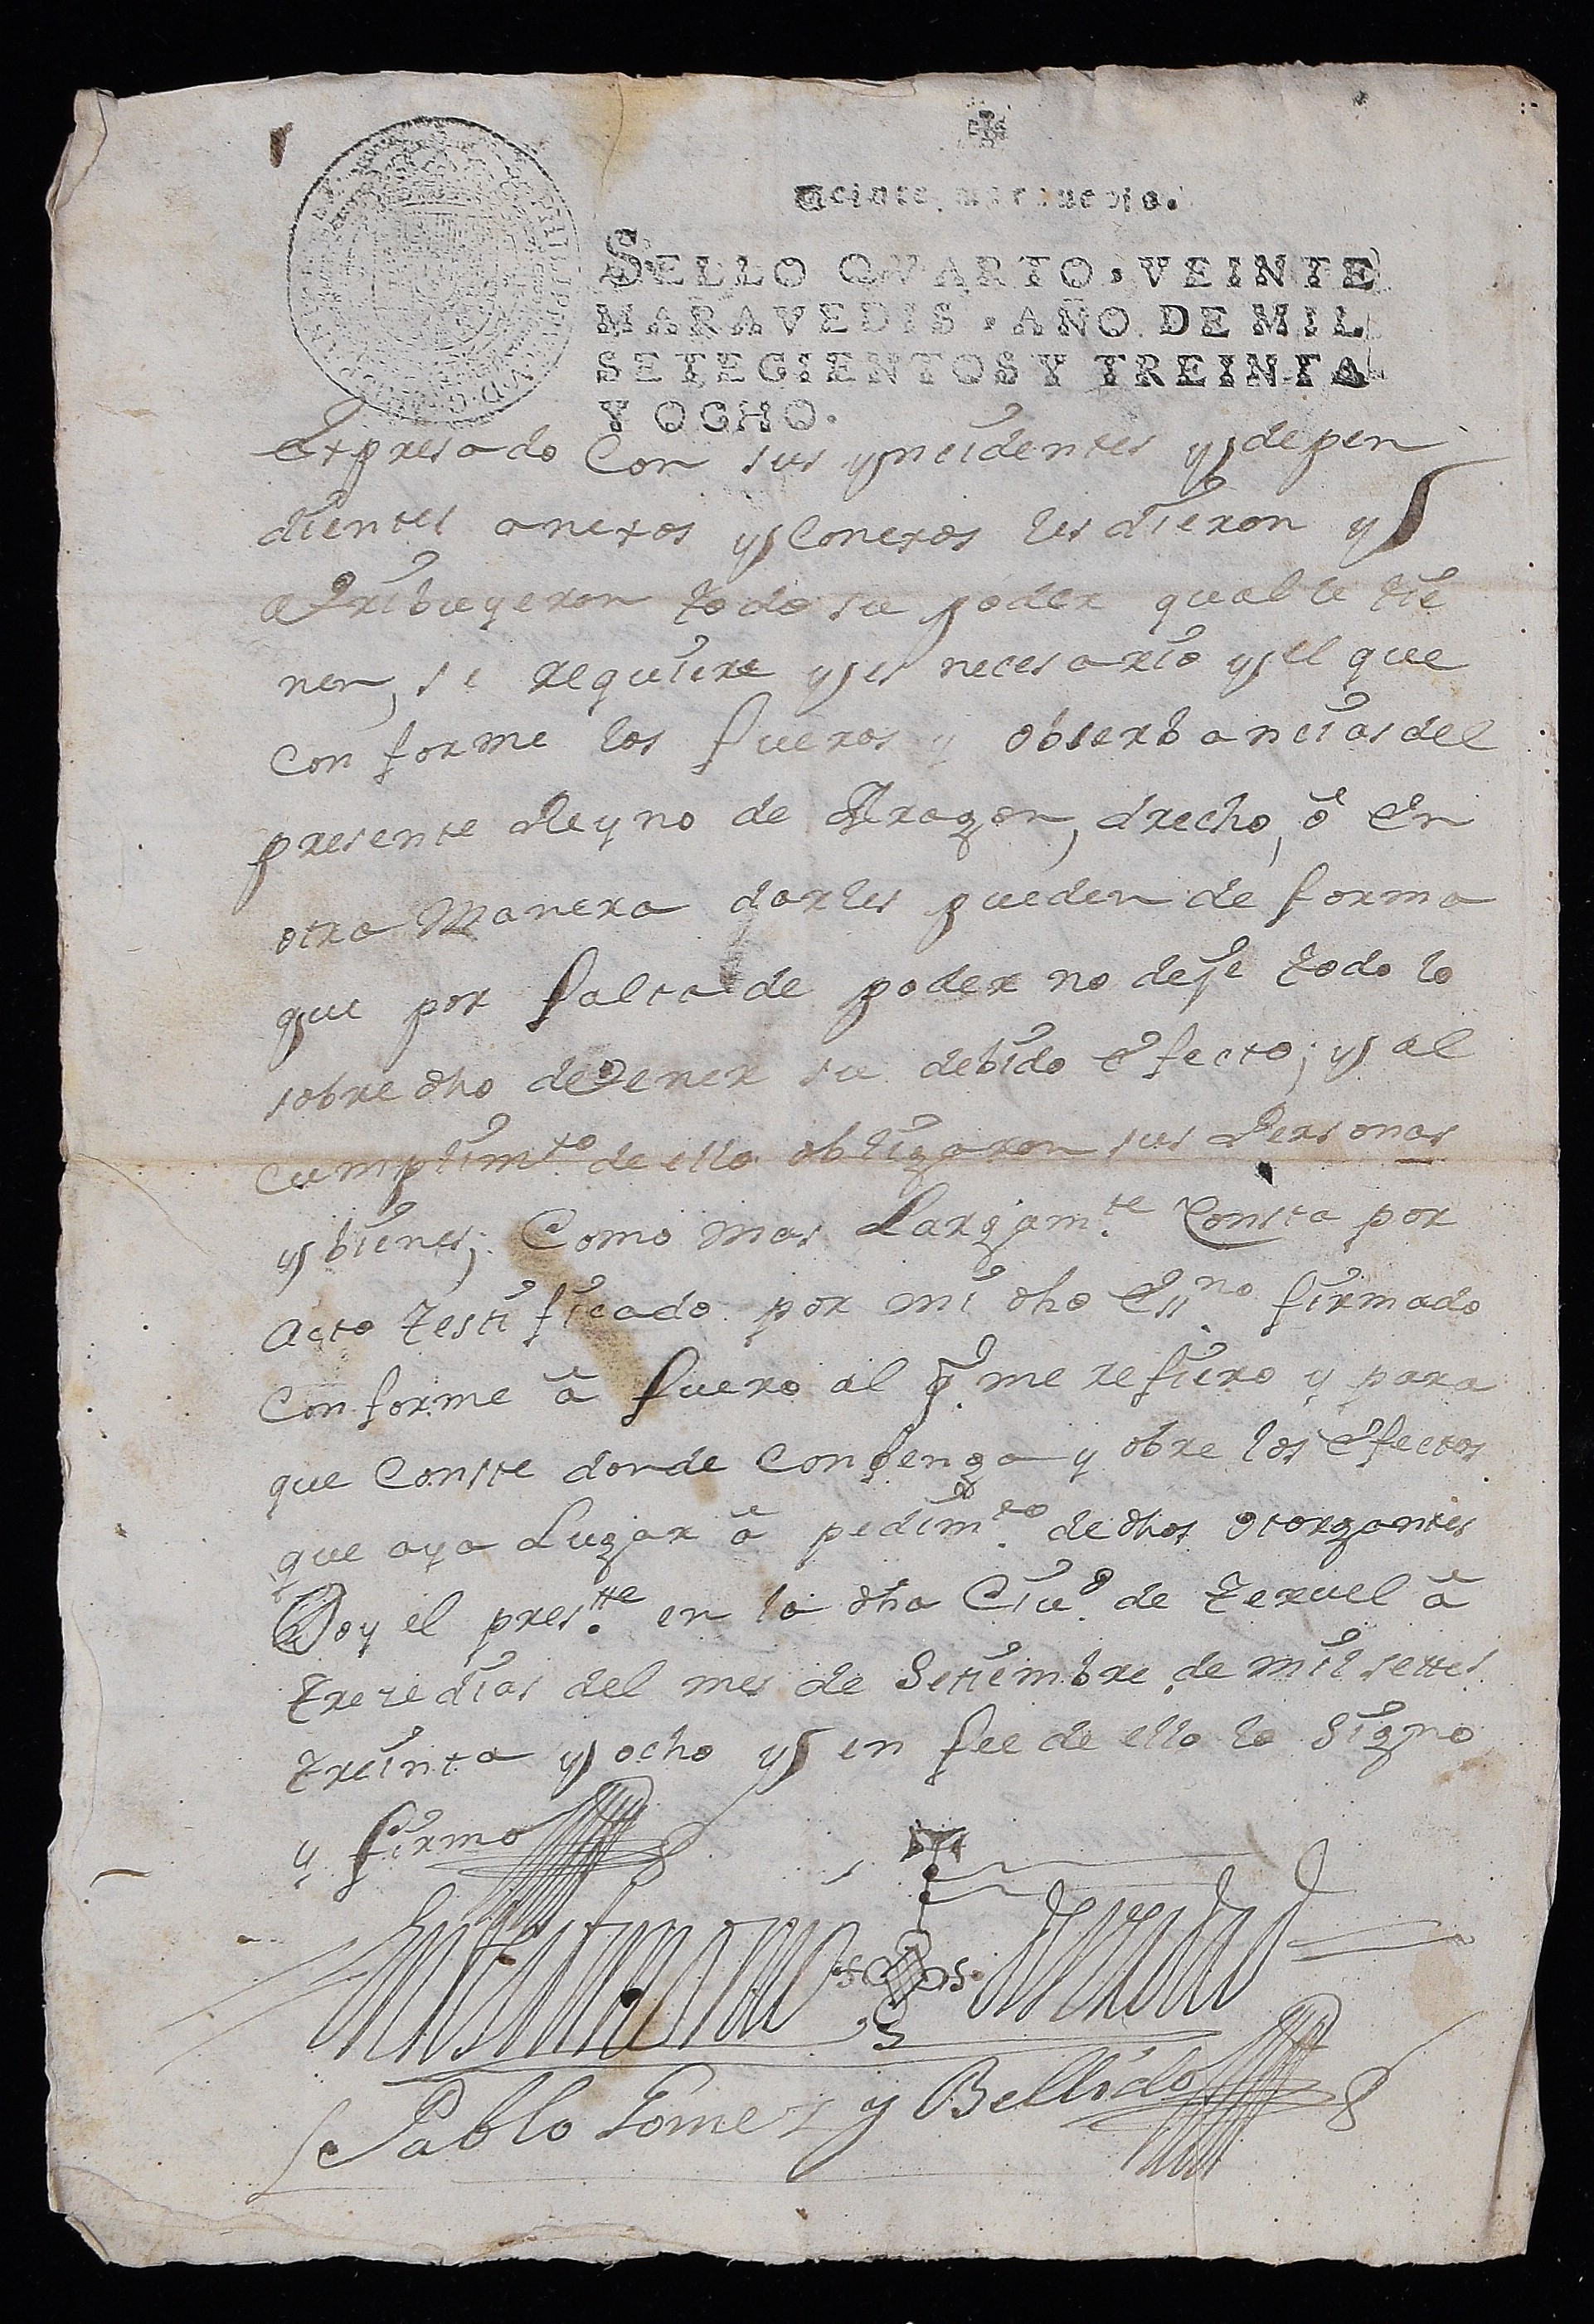 Veinte marauedis.
SELLO QVARTO, VEINTE
MARAVEDIS, AÑO DE MIL
SETECIENTOS Y TREINTA
Y OCHO.
Expresado Con sus yncidentes y depen
dientes anexos y Conexos les dieron y
atribuyeron todo su poder qual le tie
nen, se requiere y es necesario y el que
conforme los fueros y obserbancias del
presente Reyno de Aragon, drecho, ô En
otra Manera darles pueden de forma
que por falta de poder no deje todo lo
sobre dho de tener su debido Efecto; y al
cumplim.to de ello obligaron sus Personas
y bienes; Como mas Largam.te Consta por
Acto testificado por mi dho Ess.no firmado
Conforme â fuero al q. me refiero y para
que Conste donde Conbenga y obre los Efectos
que aya Lugar â pedim.to de dhos otorgantes
Doy el pres.tte en la dha Ciu.d de Teruel â
treze dias del mes de Settiembre de mil settes
treinta y ocho y en fee de ello lo Signo
y firmo
En testimonio de verdad
Pablo Gomez y Bellido